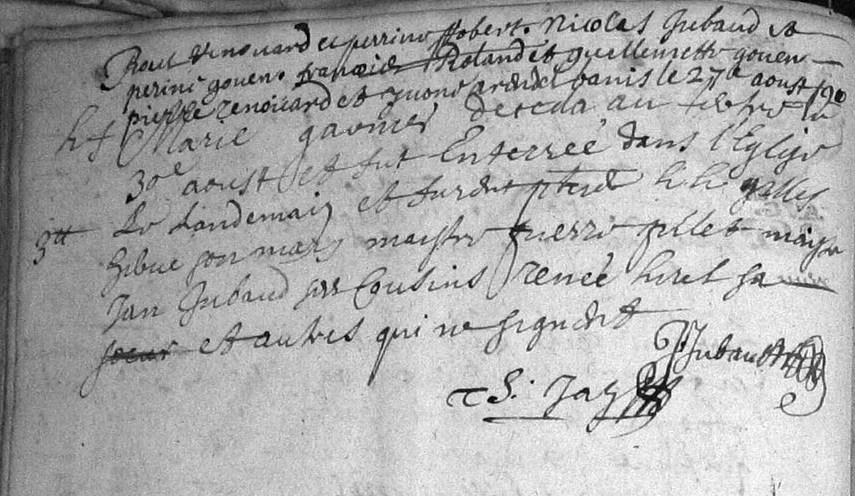 Roul Renouard et perrine Robert. Nicolas Jubaud et
perine gouen francois Roland et guillemette gouen
pierre Renouard et banis le 27e aoust 90
Marie garnier deceda au le
30e aoust et fut Enterree dans l'Eglise
3tt Le Landemain et furent pnts h h gilles
son mary maistre pierre pillet maistre
Jan Jubaud ses Cousins renee hivel sa
soeur et autres qui ne signent
J Jubaud
S. Jay